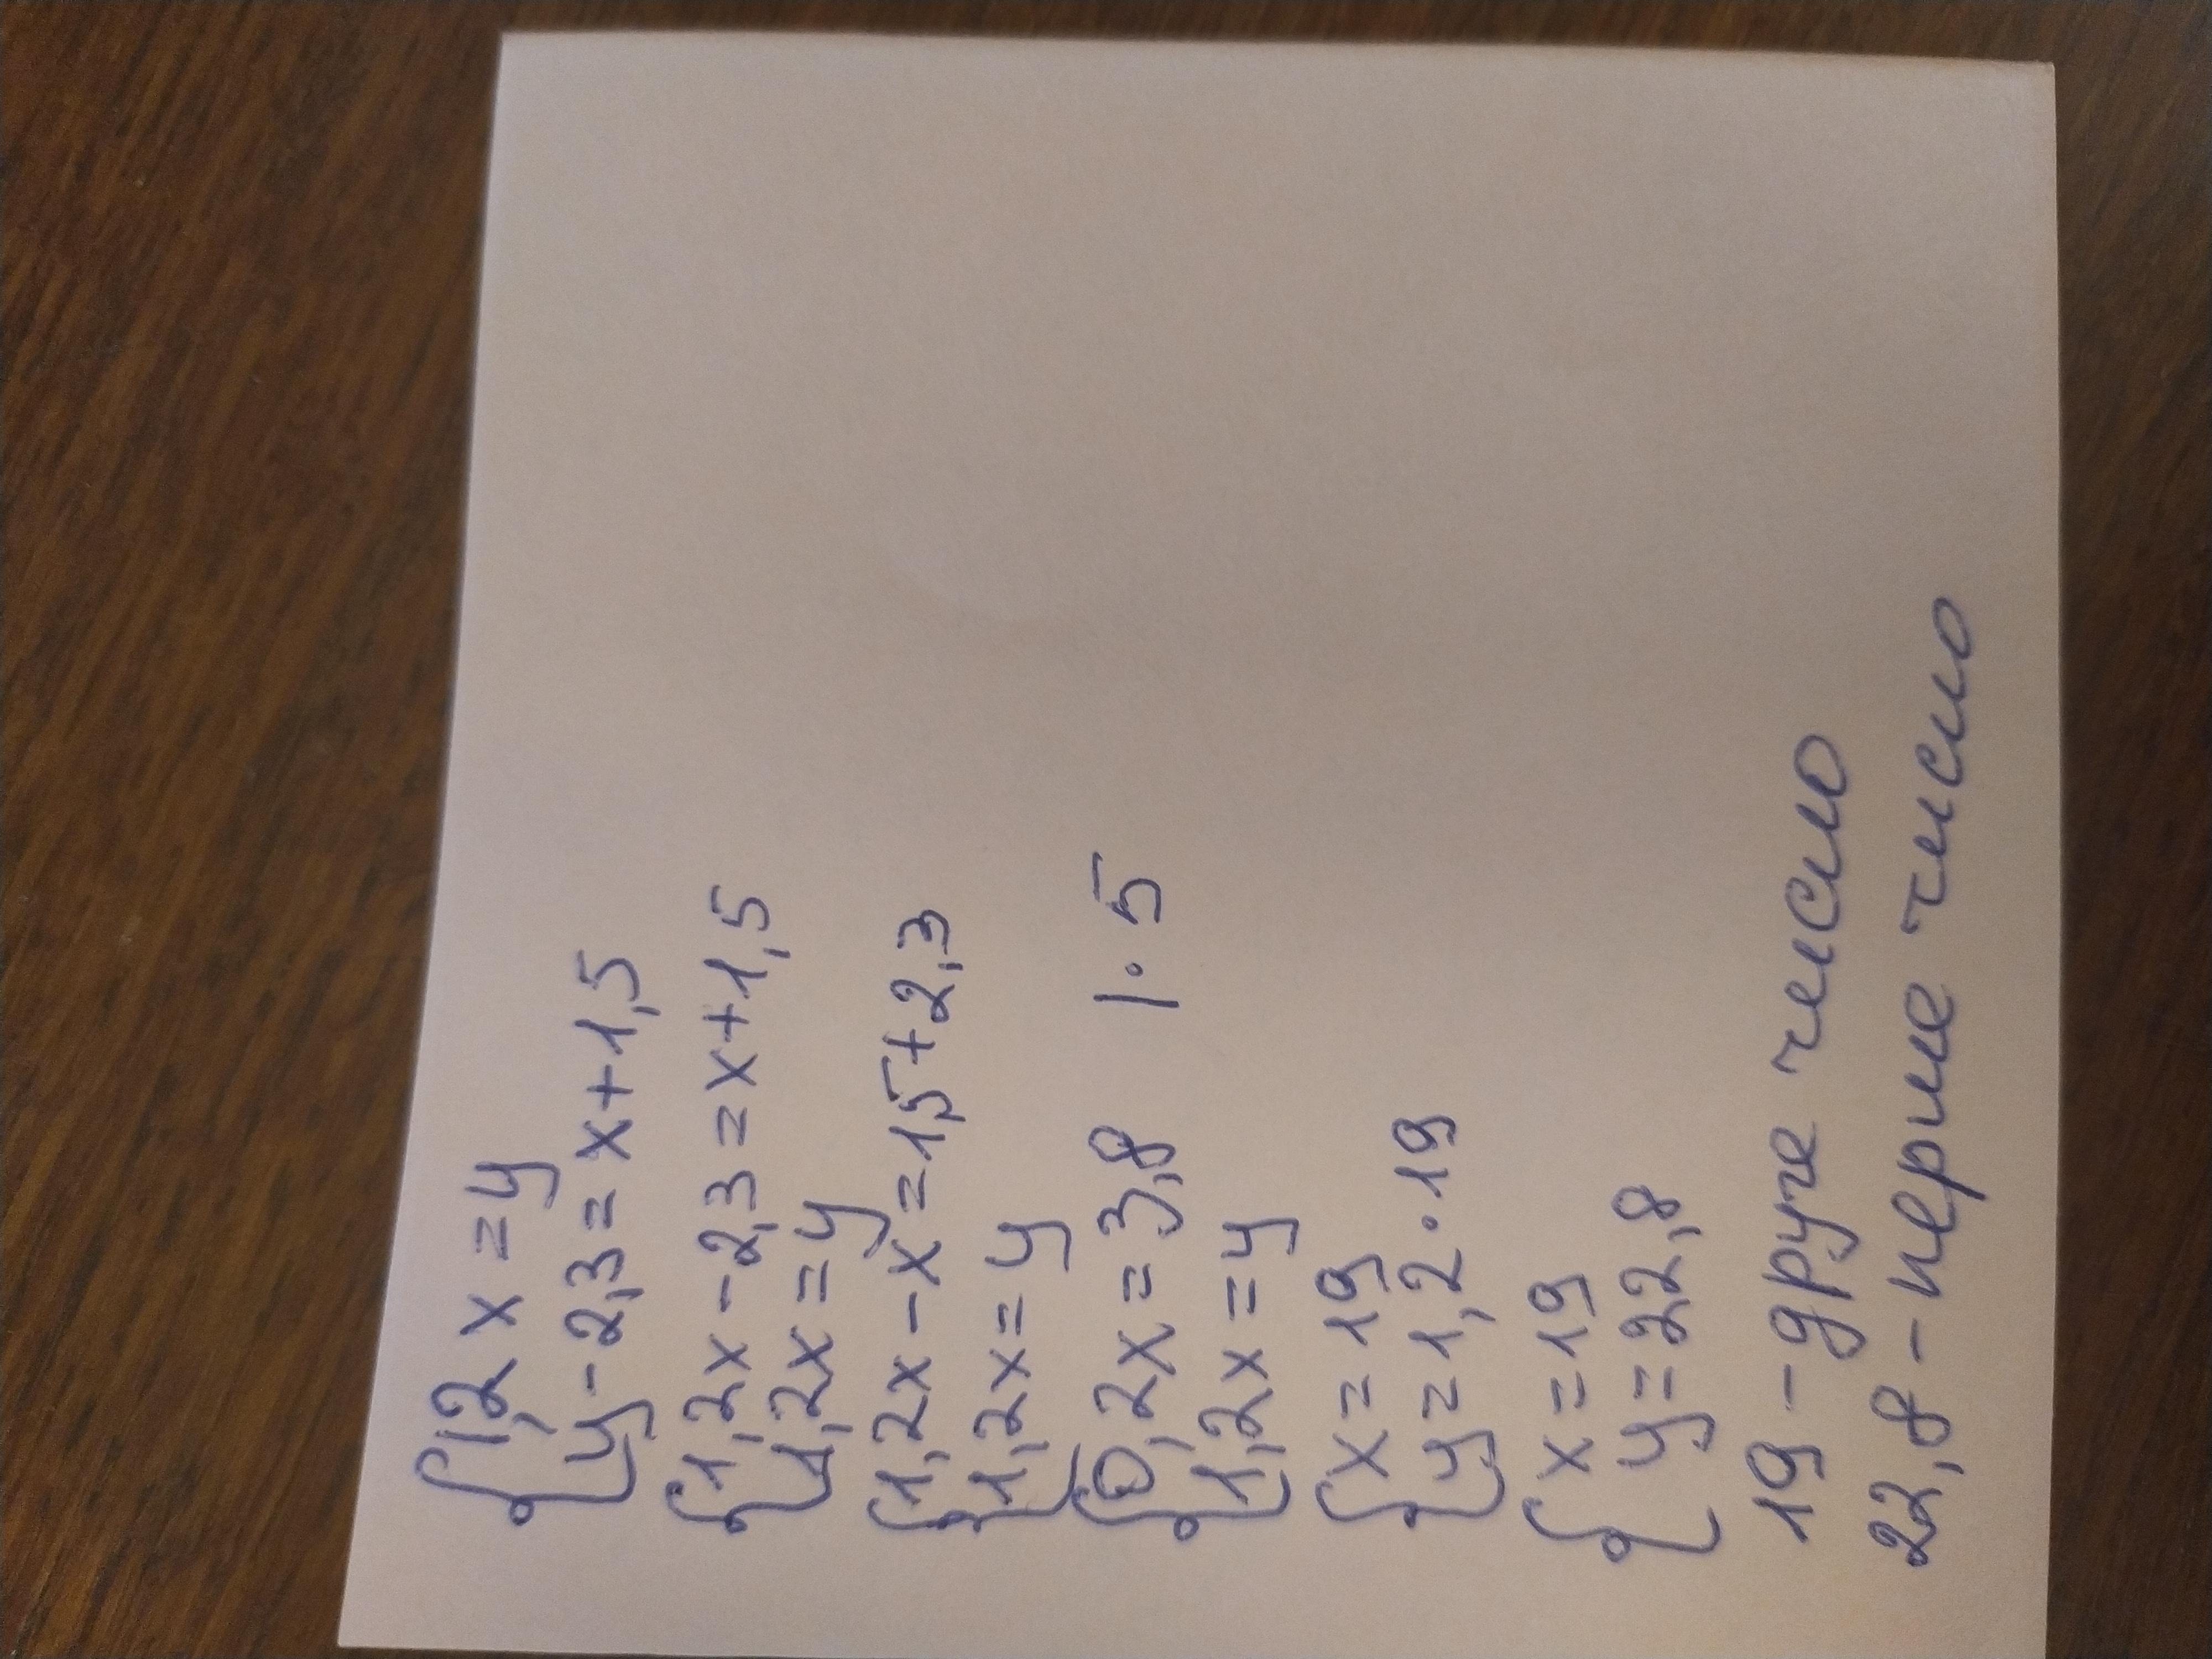 {1,2x=y
{y-2,3=x+1,5
{1,2x-2,3=x+1,5
{1,2x=y
{1,2x-x=1,5+2,3
{1,2x=y
{0,2x=3,8 |·5
{1,2x=y
{x=19
{y=1,2·19
{x=19
{y=22,8
19-друге число
22,8-перше число